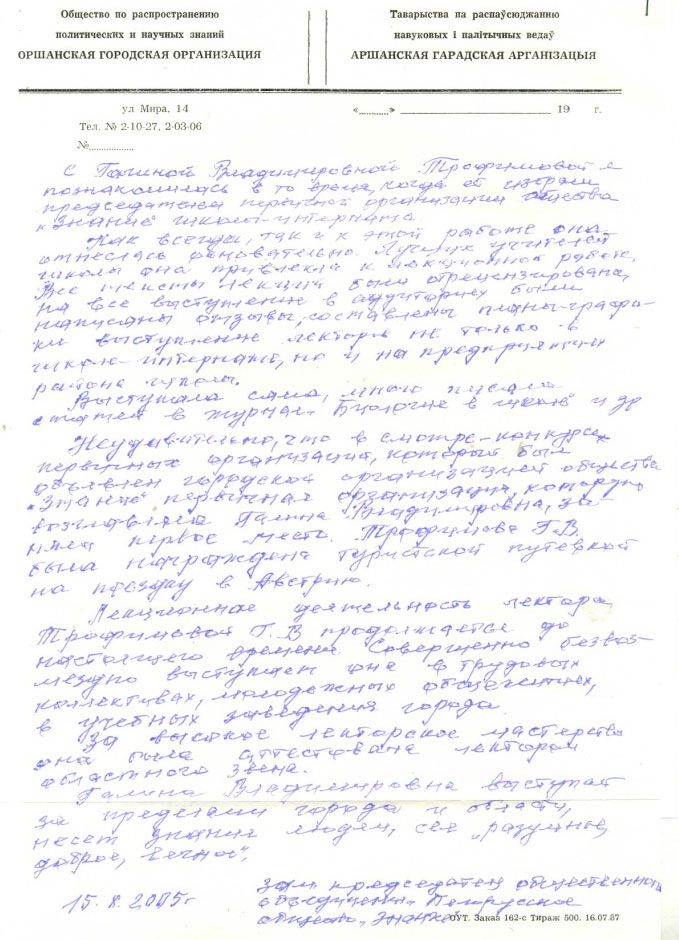 Общество по распространению
политических и научных знаний
ОРШАНСКАЯ ГОРОДСКАЯ ОРГАНИЗАЦИЯ
Таварыства па распаўсюджанню
навуковых і палітычных ведаў
АРШАНСКАЯ ГАРАДСКАЯ АРГАНІЗАЦЫЯ
ул Мира, 14
Тел. № 2-10-27, 2-03-06
№
« » 19 г.
С Галиной Владимировной Трофимовой я
познакомилась в то время, когда её избрали
председателем первичной организации общества
"Знание" школы-интерната.
Как всегда, так и к этой работе она
отнеслась основательно. Лучших учителей
школы она привлекла к лекционной работе.
Все тексты лекций были отрецензированы,
на все выступления в аудиториях были
написаны отзывы, составлены планы-графи-
ки выступления лекторов не только в
школе-интернате, но и на предприятиях
района школы.
Выступала сама, много писала
статей в журнал "Биология в школе" и др
Неудивительно, что в смотре-конкурсе
первичных организаций, который был
объявлен городской организацией общества
"Знание" первичная организация, которую
возглавляла Галина Владимировна, за-
няла первое место. Трофимова Г.В.
была награждена туристской путевкой
на поездку в Австрию.
Лекционная деятельность лектора
Трофимовой Г.В продолжается до
настоящего времени. Совершенно безвоз-
мездно выступает она в трудовых
коллективах, молодежных общежитиях,
в учебных заведения города.
За высокое лекторское мастерство
она была аттестована лектором
областного звена.
Галина Владимировна выступает
за пределами города и области,
несет знания людям, сея "разумное,
доброе, вечное".
15. 8. 2005г
зам. председателя общественного
объединения "Белорусское
общество "Знание"
ОУТ. Заказ 162-с Тираж 500. 16.07.87